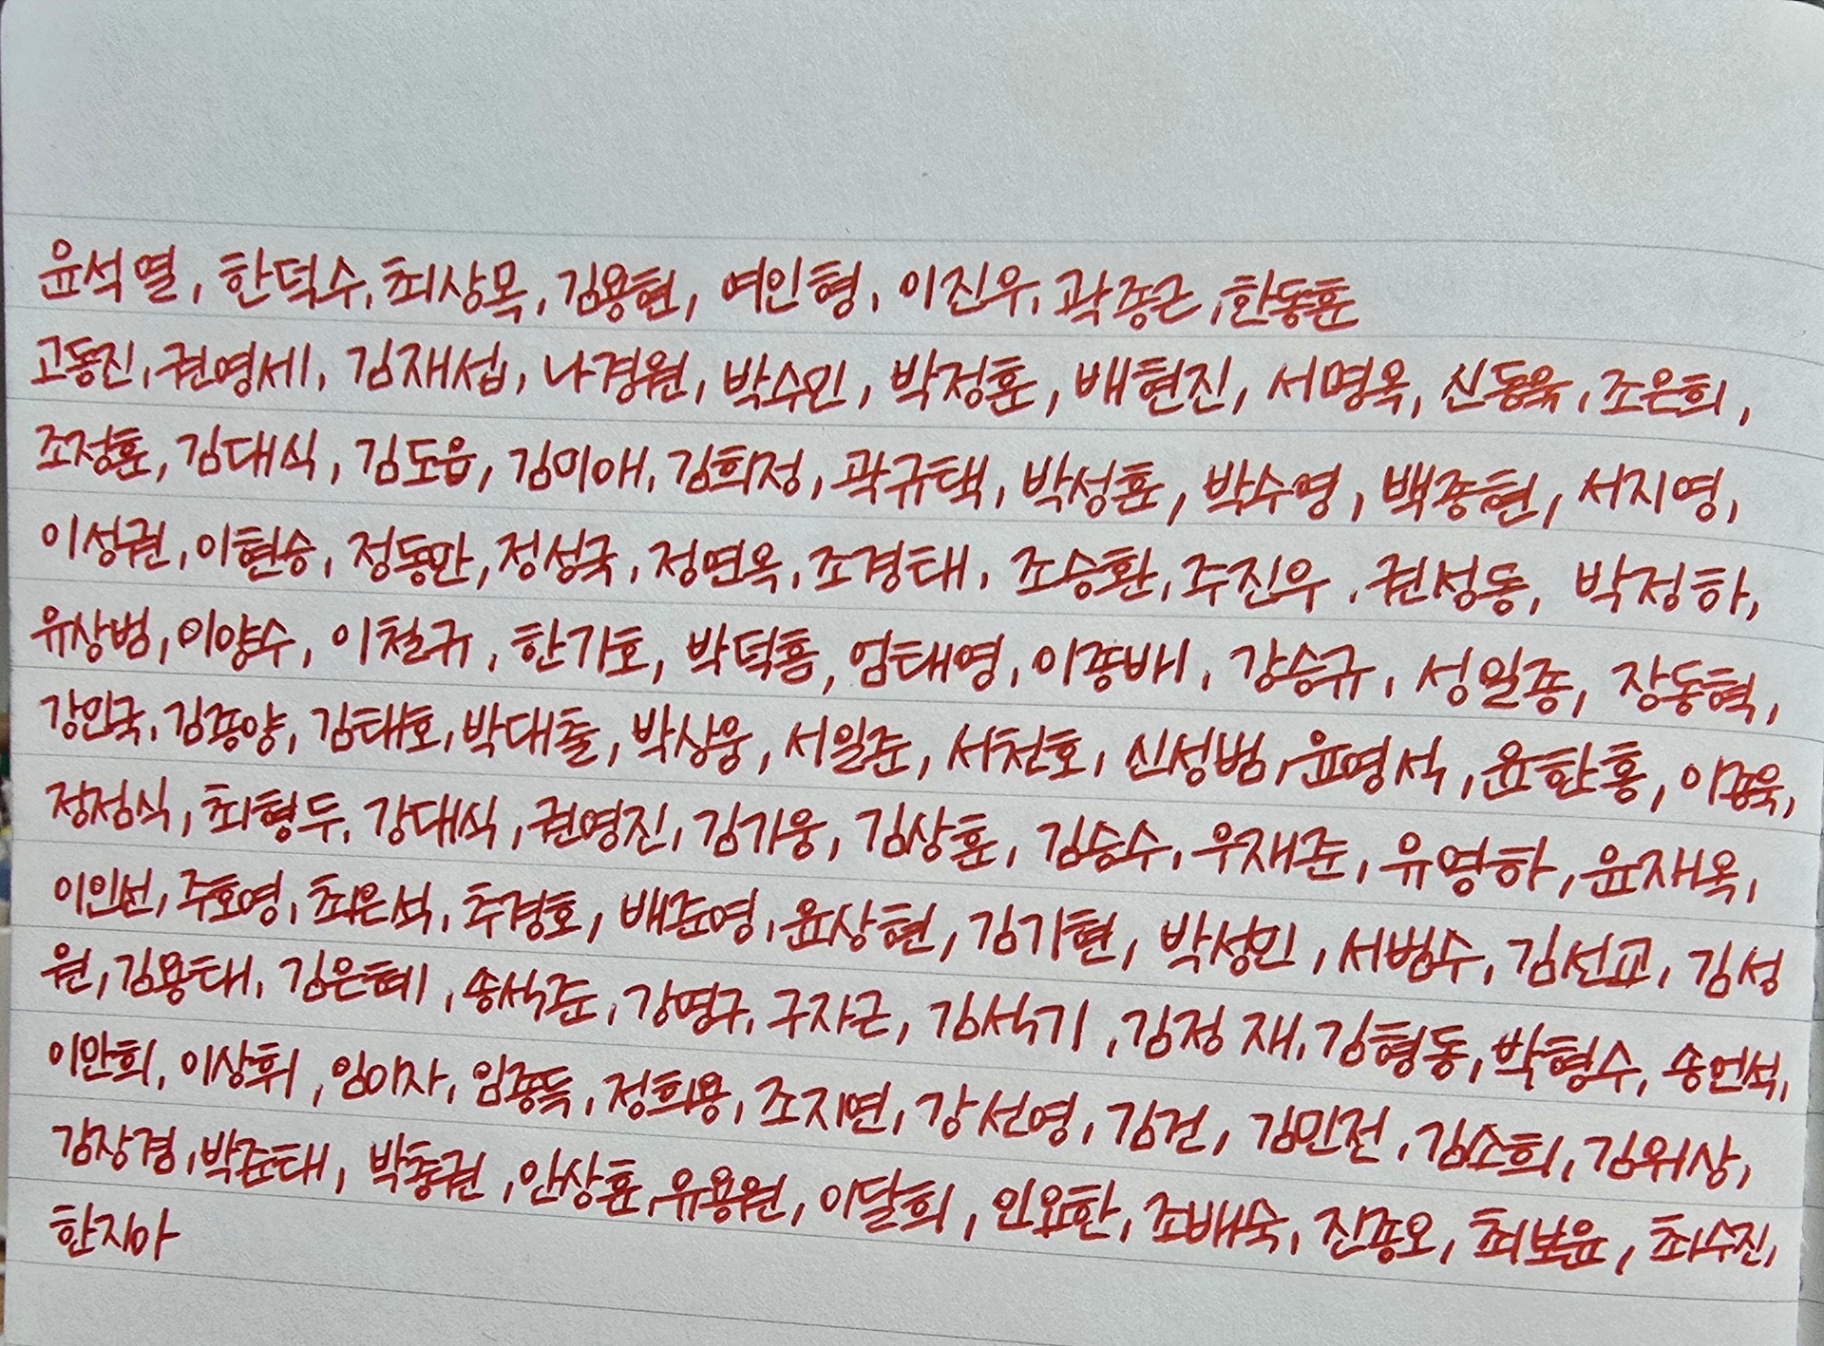 윤석열, 한덕수, 최상목, 김용현, 여인형, 이진우, 곽종근, 한동훈
고동진, 권영세, 김재섭, 나경원, 박수민, 박정훈, 배현진, 서명옥, 신동욱, 조은희,
조정훈, 김대식, 김도읍, 김미애, 김희정, 곽규택, 박성훈, 박수영, 백종헌, 서지영,
이성권, 이헌승, 정동만, 정성국, 정연욱, 조경태, 조승환, 주진우, 권성동, 박정하,
유상범, 이양수, 이철규, 한기호, 박덕흠, 엄태영, 이종배, 강승규, 성일종, 장동혁,
강민국, 김종양, 김태호, 박대출, 박상웅, 서일준, 서천호, 신성범, 윤영석, 윤한홍, 이종욱,
정점식, 최형두, 강대식, 권영진, 김기웅, 김상훈, 김승수, 우재준, 유영하, 윤재옥,
이인선, 주호영, 최은석, 추경호, 배준영, 윤상현, 김기현, 박성민, 서범수, 김선교, 김성
원, 김용태, 김은혜, 송석준, 강명구, 구자근, 김석기, 김정재, 김형동, 박형수, 송언석,
이만희, 이상휘, 임이자, 임종득, 정희용, 조지연, 강선영, 김건, 김민전, 김소희, 김위상,
김장겸, 박준태, 박충권, 안상훈, 유용원, 이달희, 인요한, 조배숙, 진종오, 최보윤, 최수진,
한지아